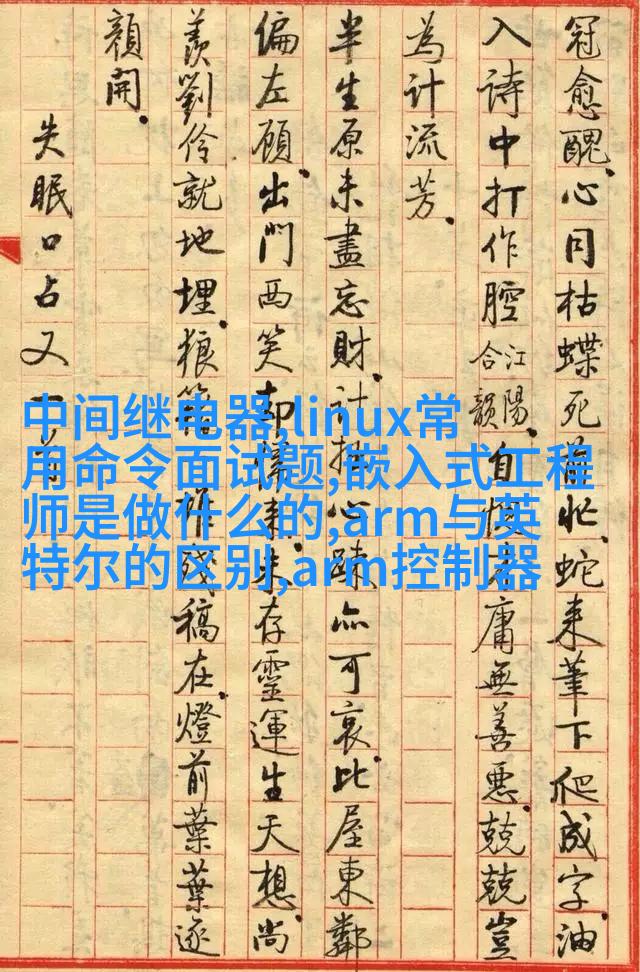 冠愈醜。心同枯蝶死前忙。蛇来筆下爬成字。油
入詩中打作腔江陽合韻。自庸無善惡。兢兢豈
為計流芳。
半生原未盡忘財。計拙心疎亦可哀。比屋東鄰
偏左顧。出門西笑却来。未存靈運生天想。尚
羨劉伶就地埋。狼籍作殘稿在。燈前葉葉逐
顏開。
失眠口占又一首
中间继电器,linux常
用命令面试题,嵌入式工程
师是做什么的,arm与英
特尔的区别,arm控制器